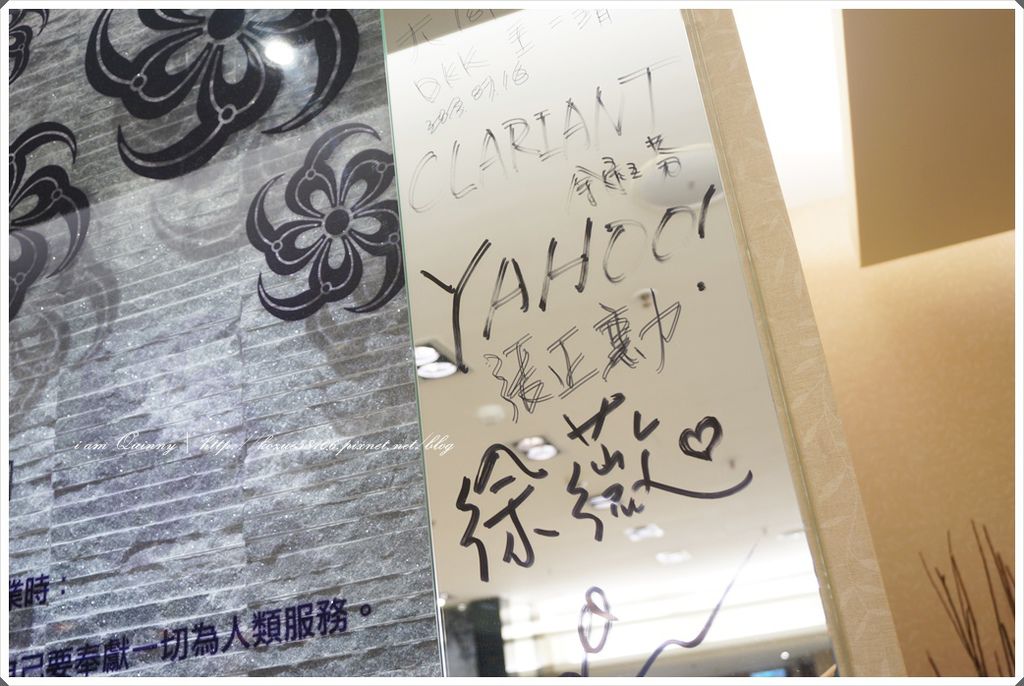 DKK
2013.07.16
CLARIANT
YAHOO!
張正勳
徐薇
i am Quinny | http://
.pixnet.net/blog
業時：
己要奉獻一切為人類服務。